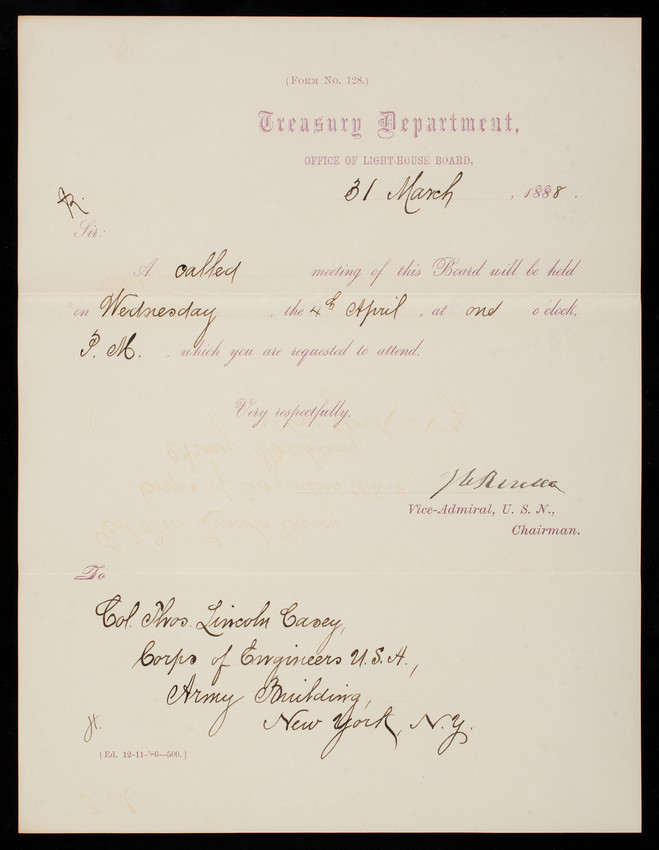 (Form No. 128.)
Treasury Department,
OFFICE OF LIGHT-HOUSE BOARD,
31 March, 1888.
R.
Sir:
A called meeting of this Board will be held
on Wednesday, the 4th April, at one o'clock,
P. M., which you are requested to attend.
Very respectfully,
Vice-Admiral, U. S. N.,
Chairman.
To
Col. Thos. Lincoln Casey,
Corps of Engineers U.S.A.,
Army Building,
New York, N.Y.
[Ed. 12-11-'86—500.]